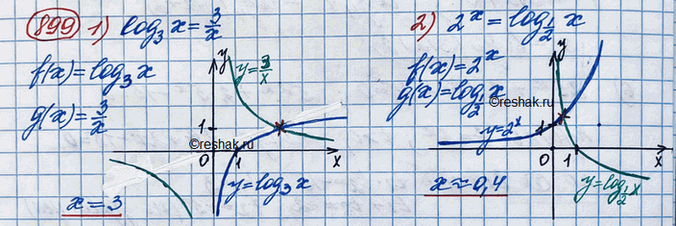 899 1) log₃ x = 3/x
f(x) = log₃ x
g(x) = 3/x
y
y = 3/x
1
©reshak.ru
0 1 x
y = log₃ x
x = 3
2) 2ˣ = log_{1/2} x
f(x) = 2ˣ
g(x) = log_{1/2} x
y
©reshak.ru
y = 2ˣ
1
0 1 x
x ≈ 0,4
y = log_{1/2} x